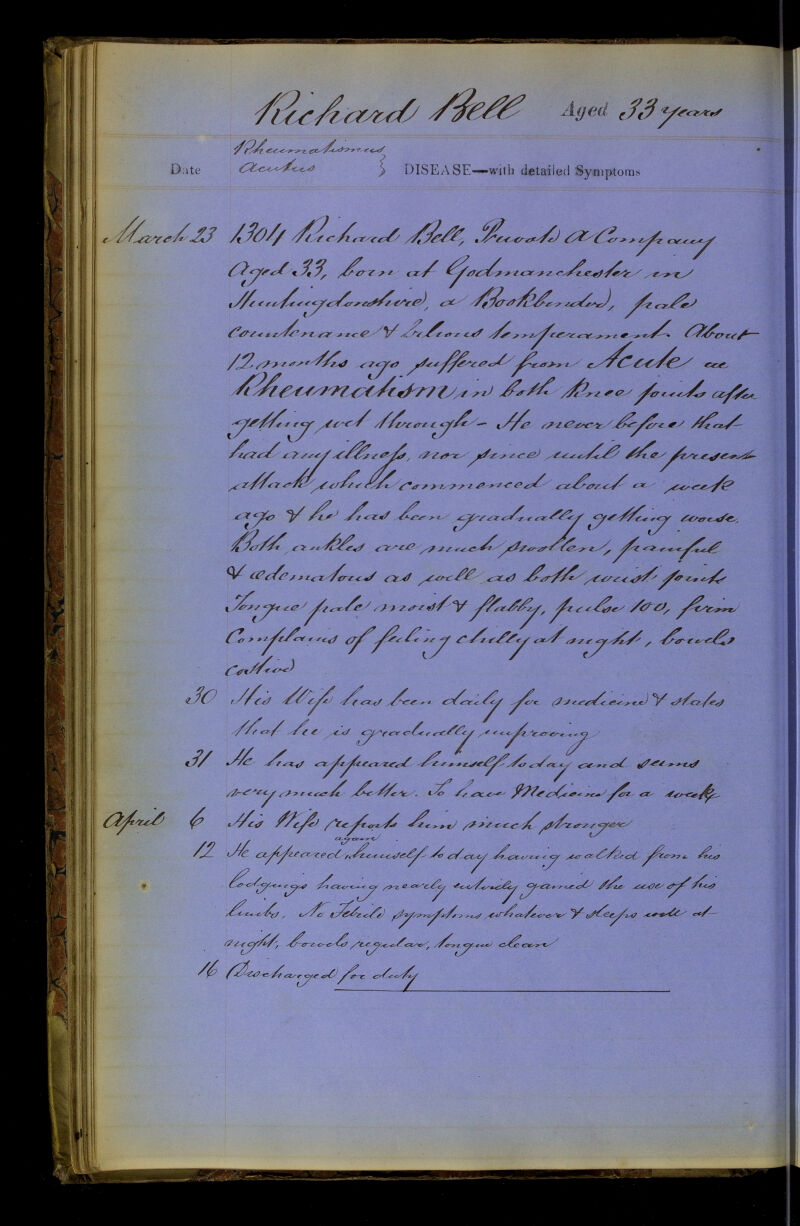 Richard Bell Aged 33 years
Rheumatismus
Date Acutus } DISEASE—with detailed Symptoms
March 23 1304 Richard Bell, Private A Company
Aged 33, born at Godmanchester in
Huntingdonshire, a Bookbinder, pale
countenance & bilious temperament. About
12 months ago suffered from Acute
Rheumatism in both Knee joints after
getting wet through - He never before that
had any illness, nor since until the present
attack which commenced about a week
ago & he has been gradually getting worse.
Both ankles are much swollen, painful
& œdematous as well as both wrist joints
Tongue pale moist & flabby, pulse 100, firm
Complains of feeling chilly at night, bowels
costive
30 His Wife has been daily for medicine & states
that he is gradually improving
31 He has appeared himself today and seems
very much better. To have Medicine for a week
April 6 His Wife reports him much stronger
again
12 He appeared himself today having walked from his
lodgings having nearly entirely gained the use of his
limbs. No Febrile symptoms whatever & sleeps well at
night, bowels regular, tongue clean
16 Discharged for duty